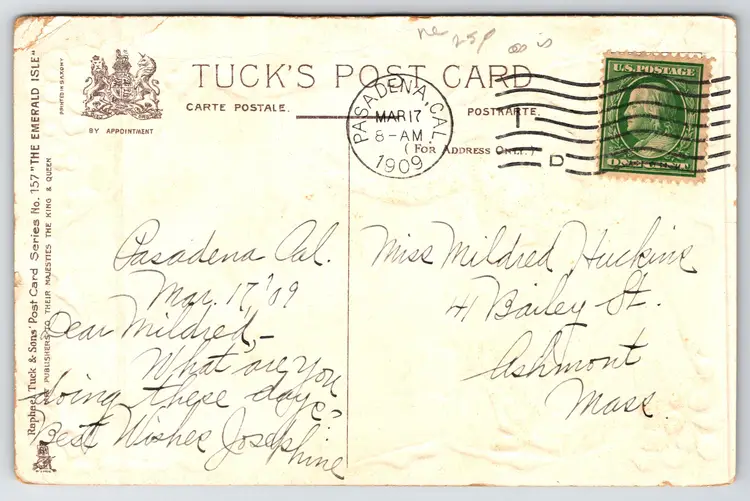 as is
TUCK'S POST CARD
CARTE POSTALE.
POSTKARTE.
(FOR ADDRESS ONLY.)
BY APPOINTMENT
PRINTED IN SAXONY
Raphael Tuck & Sons' Post Card Series No. 157 "THE EMERALD ISLE"
PUBLISHERS TO THEIR MAJESTIES THE KING & QUEEN
PASADENA, CAL.
MAR 17
8-AM
1909
D
U.S. POSTAGE
ONE CENT
Pasadena Cal.
Mar. 17, '09
Dear Mildred,-
What are you
doing these days-
Best Wishes Josephine
Miss Mildred Huckins
41 Bailey St.
Ashmont
Mass.